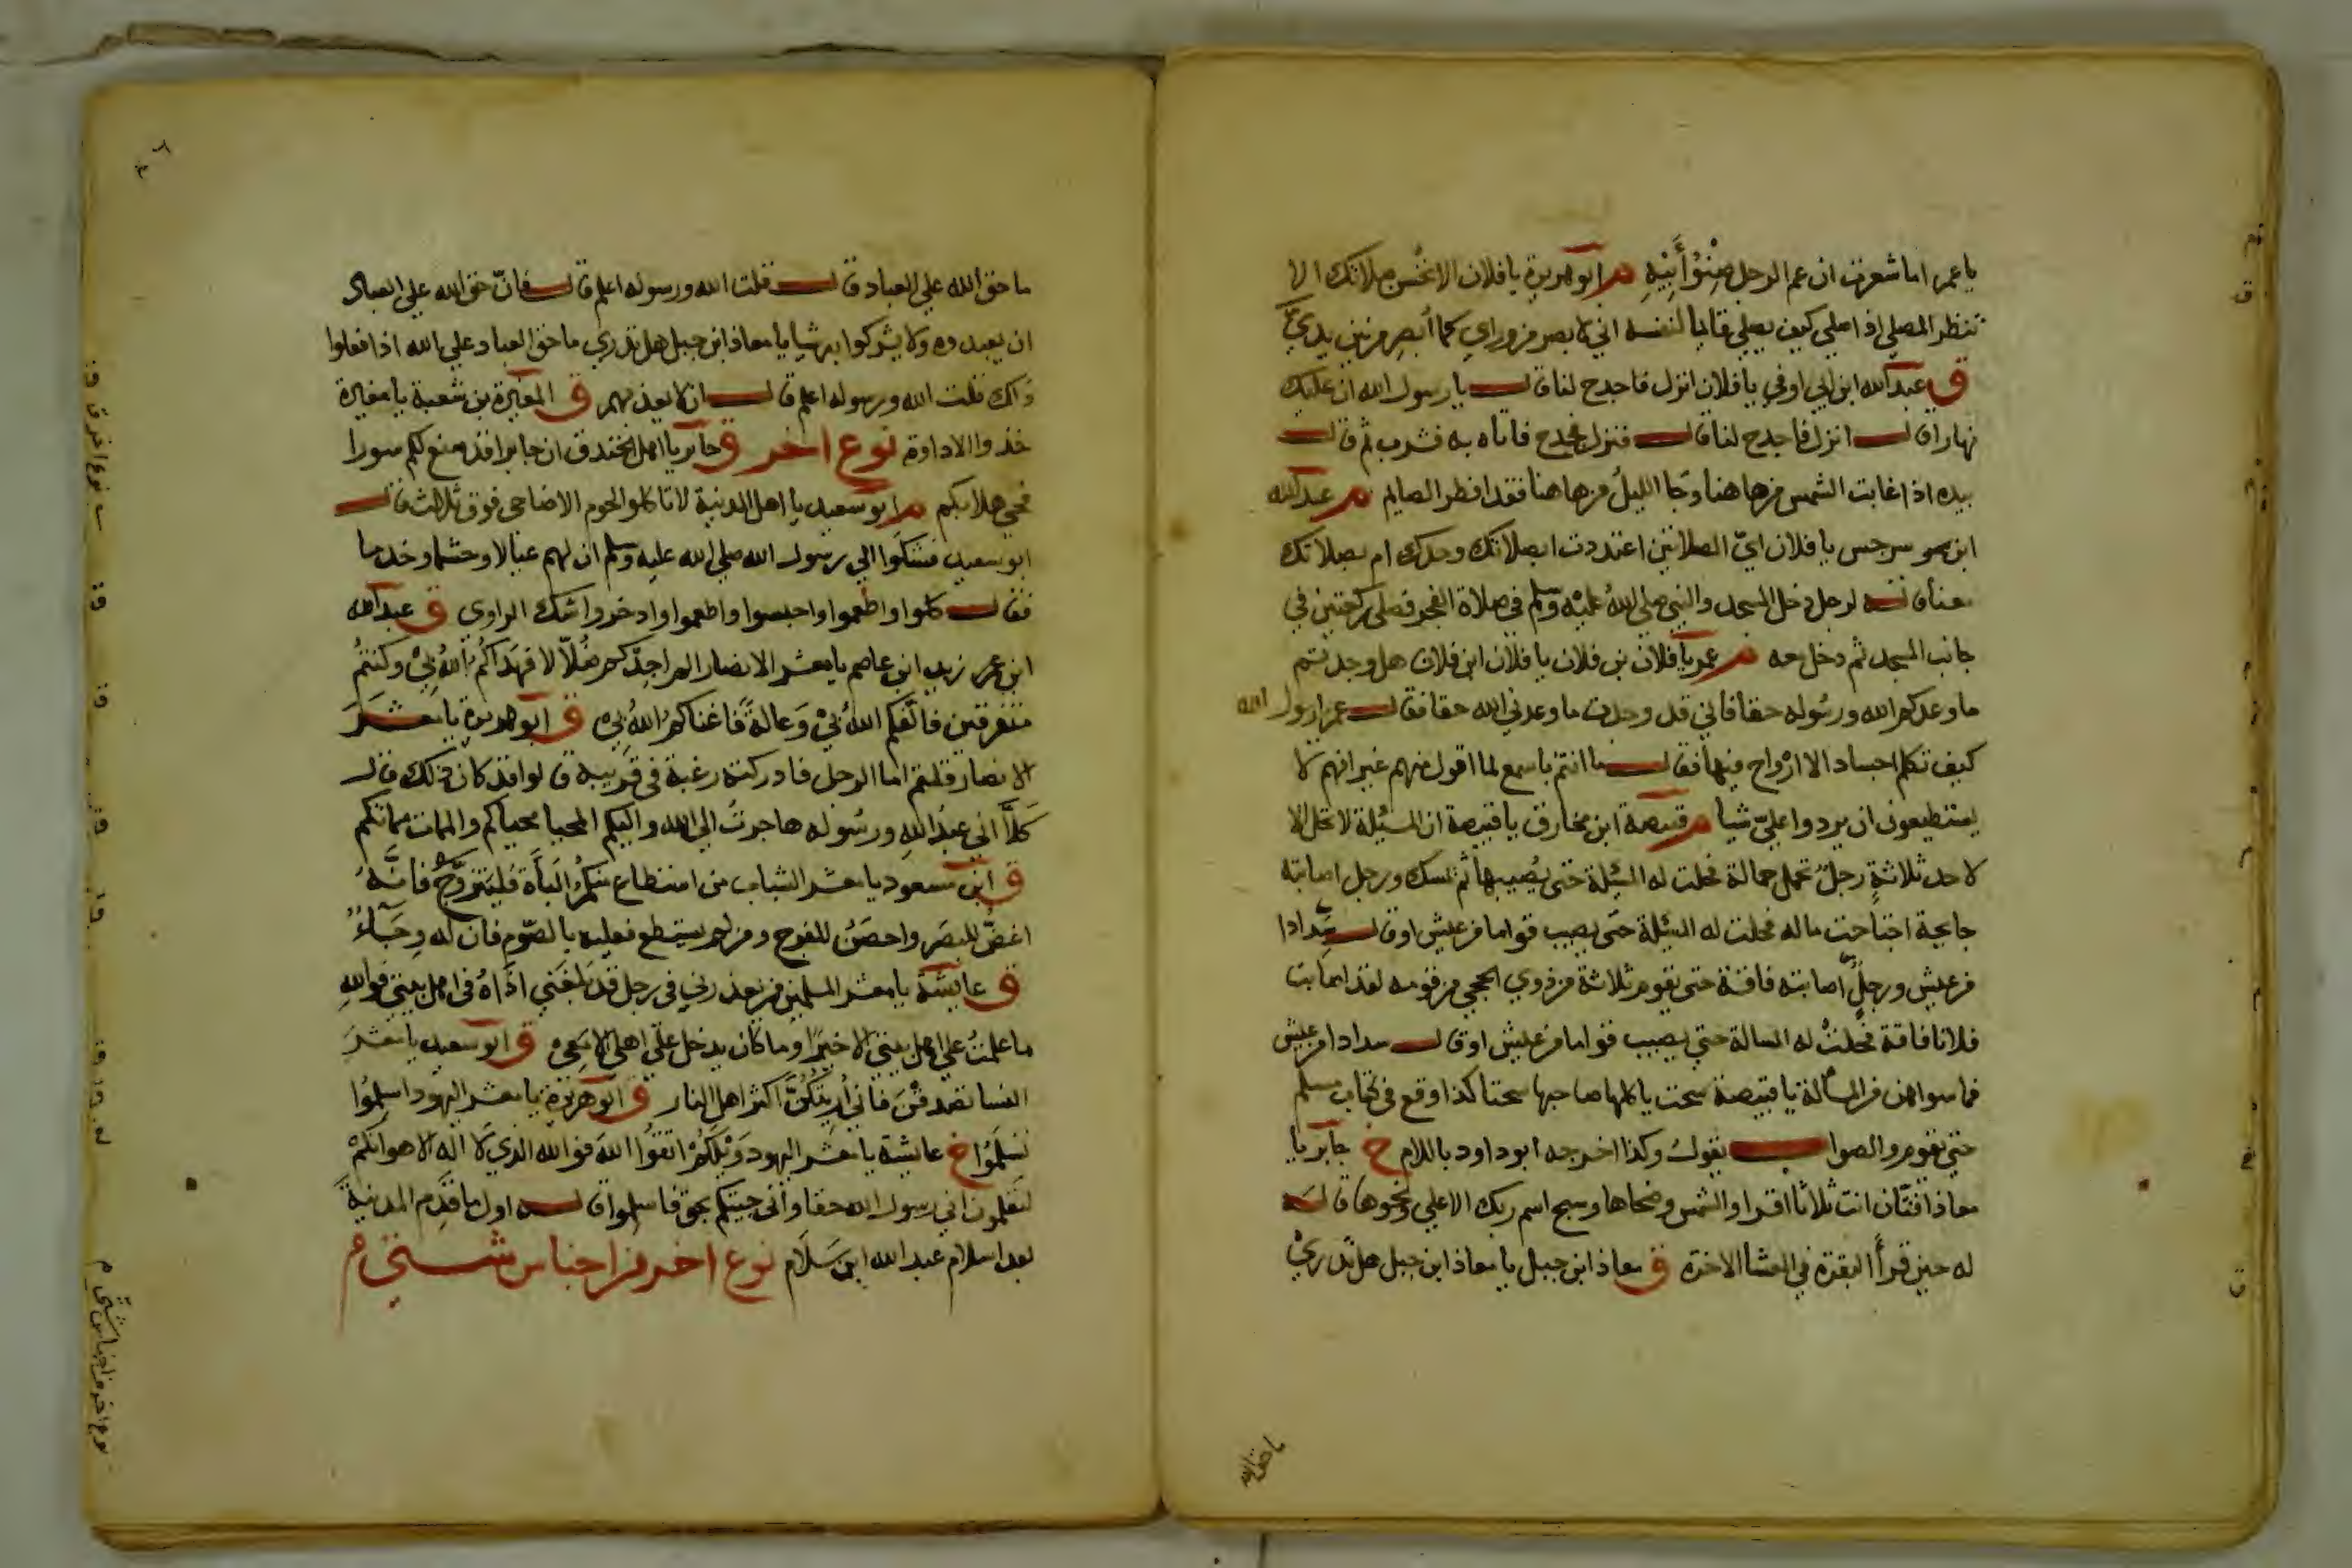 يا عمر اما شعرت ان عم الرجل صِنْوُ أَبِيْهِ م ابو هريرة يا فلان الا تحُسن صلاتك الا
تنظر المصلي اذا صلي كيف يصلي فانما لنفسه اني لابصر من وراي كما اُبصِر من بين يديّ
ق عبد الله ابن ابي اوفي يا فلان انزل فاجدح لنا قال يا رسول الله ان عليك
نهارا قال انزل فاجدح لنا قال فنزل فجدح فاتاه به فشرب ثم قال
بيده اذا غابت الشمس من هاهنا وجَا الليلُ من هاهنا فقد افطر الصايم م عبد الله
ابن سرجس يا فلان ايّ الصلاتين اعتددت ابصلاتك وحدك ام بصلاتك
معنا قاله لرجل دخل المسجد والنبي صلي اللهُ عليْه وسلم في صلاة الفجر فصلي ركعتين في
جانب المسجد ثم دخل معه م عمر يا فلان بن فلان يا فلان ابن فلان هل وجدتم
ما وعدكم الله ورسُوله حقا فاني قد وجدت ما وعدني الله حقا فقال عمر يا رسول الله
كيف تكلم اجساد الا ارْواح فيها فقال ما انتم باسمع لما اقول منهم غير انهم لا
يستطيعون ان يردوا عليّ شيا م قبيصة ابن مخارق يا قبيصة ان المسئلة لا تحل الا
لاحد ثلاثةٍ رجلٌ تحمل حمالة فحلت له المسئلة حتى يُصيبها ثم يمسك ورجل اصابته
جايحة اجتاحت ماله فحلت له المسئلة حتى يصيب قواما من عيش او قال سِدادا
من عيش ورجلٌ اصابته فاقة حتى يقوم ثلاثة من ذوي الحجي من قومه لقد اصابت
فلانا فاقة فحلتْ له المسالة حتي يصيب قواما من عيش او قال سدادا من عيش
فما سواهن من المسألة يا قبيصة سحت ياكلها صاحبها سحتا كذا وقع في كتاب مسلم
حتي يقوم والصواب يقولُ وكذا اخرجه ابو داود باللام خ جابر يا
معاذ افتّان انت ثلاثا اقرا والشمس وضحاها وسبح اسم ربك الاعلي ونحوها قاله
له حين قرأ البقرة في العشا الاخرة ق معاذ ابن جبل يا معاذ ابن جبل هل تدريْ
ما حق
ما حق الله علي العباد قال قلت الله ورسوله اعلم قال فانّ حق الله علي العباد
ان يعبدوه ولا يشركوا به شيا يا معاذ ابن جبل هل تدري ما حق العباد علي الله اذا فعلوا
ذاك قلت الله ورسوله اعلم قال ان لا يعذبهم ق المغيرة بن شعبة يا مغيرة
خذ والاداوة نوع اخر ق جابر يا اهل الخندق ان جابرا قد صنع لكم سورا
فحي هلا بكم م ابو سعيد يا اهل المدينة لا تاكلوا لحوم الاضاحى فوق ثلاث قال
ابو سعيد فشكَوا الي رسول الله صلي الله عليه وسلم ان لهم عيالا وحشما وخدما
فقال كلوا واطعموا واحبسوا واطعموا وادخروا شك الراوى ق عبد الله
ابن زيد ابن عاصم يا معشر الانصار الم اجدكم ضُلاّلا فهَداكُم اللهُ بِيْ وكنتمُ
متفرقين فالّفكم اللهُ بيْ وَعالةً فاغناكمُ اللهُ بي ق ابو هريرة يا معشرَ
الانصار قلتم اما الرجل فادركته رغبة في قريبه قالوا قد كان ذلك قال
كلاَّ اني عبدُ اللهِ ورسُوله هاجرتُ الي الله واليكم المحيا محياكم والممات مماتكم
ق ابن مسعود يا معشر الشباب من استطاع منكمُ البَأَةَ فليَتزوَّجْ فانهُ
اغضُّ للبصَر واحصَنُ للفرج ومن لم يستطع فعليه بالصّوم فان له وِجَآءٌ
ق عايشة يا معشر المسلمين من يعذرني في رجل قد بلَغَني اذاهُ في اهل بيتي فواللهِ
ما علمتُ علي اهل بيتي الا خيرًا وما كان يدخل علي اهلي الا معِى ق ابو سعيد يا معشرَ
النسا تصدقْنَ فاني اُريتكُنَّ اكثر اهل النار ق ابو هريرة يا معشر اليهود اسلِمُوا
تسلَمُوا خ عايشة يا معشر اليهود وَيْلَكُمْ اتقوُا اللهَ فو الله الذي لا اله الا هو انكمْ
لتعلمون اني رسول الله حقا وانى جيتكم بحق فاسلموا قاله اول ما قَدِم المدينةَ
بعد اسلام عبد الله ابن سَلَام نوع اخر من اجناس شتي
نوع اخر
نوع اخر من اجناس شتّى